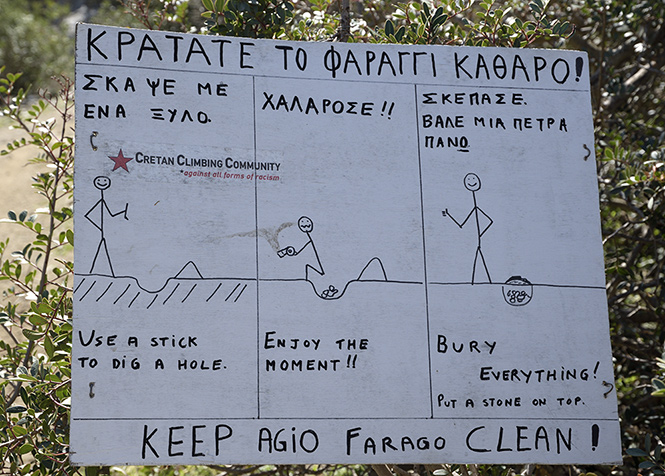 ΚΡΑΤΑΤΕ ΤΟ ΦΑΡΑΓΓΙ ΚΑΘΑΡΟ!
ΣΚΑΨΕ ΜΕ
ΕΝΑ ΞΥΛΟ.
ΧΑΛΑΡΟΣΕ!!
ΣΚΕΠΑΣΕ.
ΒΑΛΕ ΜΙΑ ΠΕΤΡΑ
ΠΑΝΟ.
CRETAN CLIMBING COMMUNITY
*against all forms of racism
USE A STICK
TO DIG A HOLE.
ENJOY THE
MOMENT!!
BURY
EVERYTHING!
PUT A STONE ON TOP.
KEEP AGIO FARAGO CLEAN!